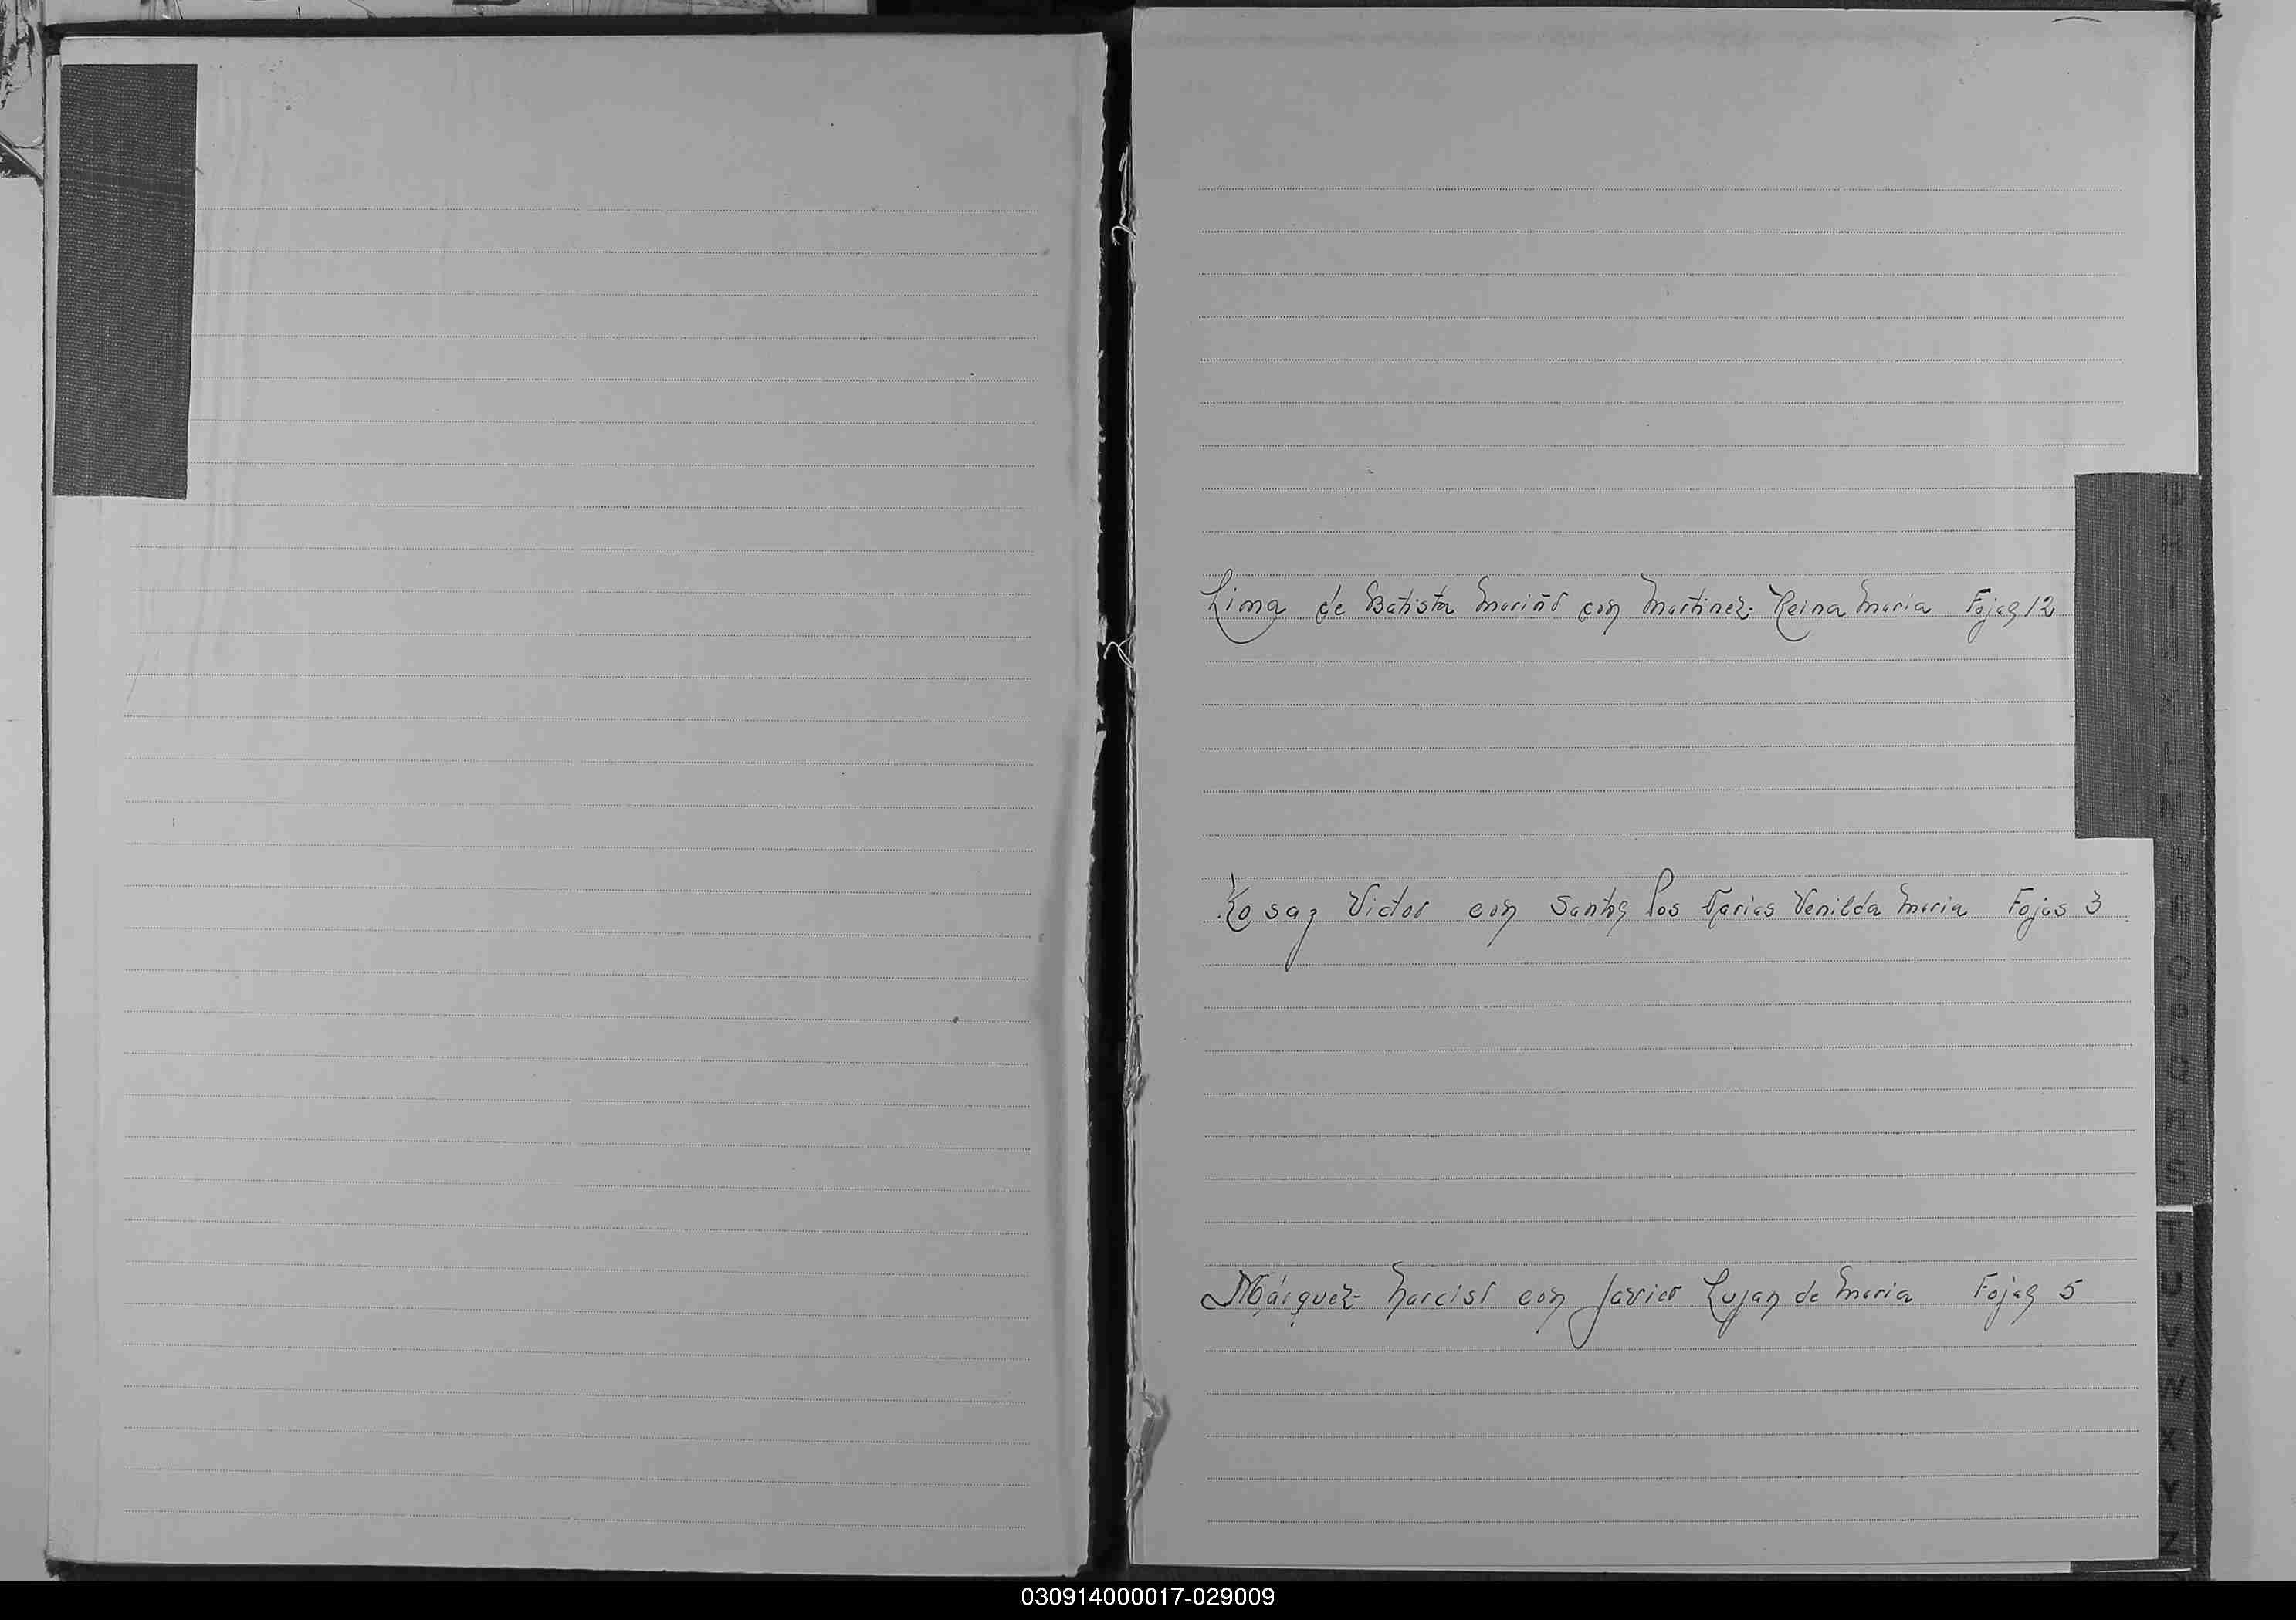 Lima de Batista Mariño con Martinez Reina Maria Fojas 12
Victor con Santos los Venilda Maria Fojas 3
Márquez Narciso con Javier Lujan de Maria Fojas 5
030914000017-029009